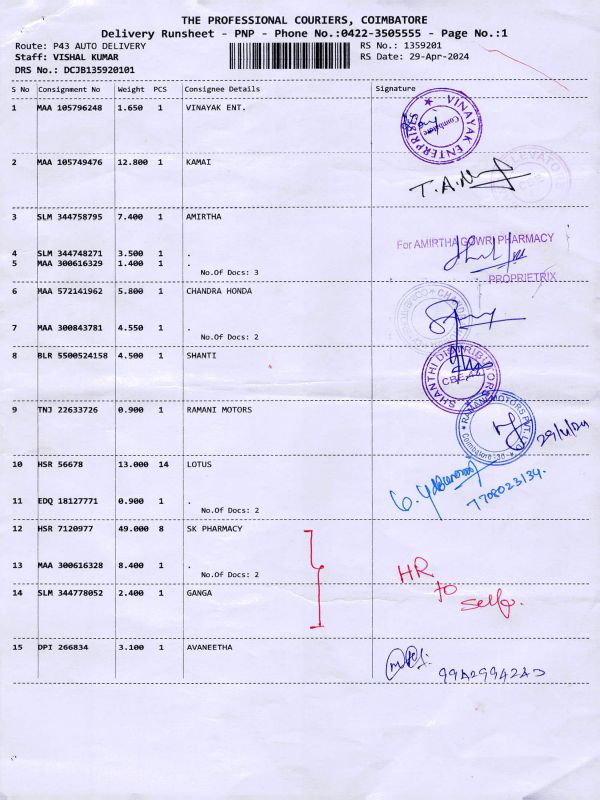 THE PROFESSIONAL COURIERS, COIMBATORE
Delivery Runsheet - PNP - Phone No.:0422-3505555 - Page No.:1
Route: P43 AUTO DELIVERY
RS No.: 1359201
Staff: VISHAL KUMAR
RS Date: 29-Apr-2024
DRS No.: DCJB135920101
S No Consignment No Weight PCS Consignee Details Signature
1 MAA 105796248 1.650 1 VINAYAK ENT.
VINAYAK ENTERPRISES
Coimbatore
2 MAA 105749476 12.800 1 KAMAI
T.A.
3 SLM 344758795 7.400 1 AMIRTHA
For AMIRTHA GOWRI PHARMACY
4 SLM 344748271 3.500 1 .
5 MAA 300616329 1.400 1 .
No.Of Docs: 3
PROPRIETRIX
6 MAA 572141962 5.800 1 CHANDRA HONDA
7 MAA 300843781 4.550 1 .
No.Of Docs: 2
8 BLR 5500524158 4.500 1 SHANTI
SHANTHI DISTRIBUTORS
9 TNJ 22633726 0.900 1 RAMANI MOTORS
RAMANI MOTORS PVT. LTD
Coimbatore-30
29/4/24
10 HSR 56678 13.000 14 LOTUS
11 EDQ 18127771 0.900 1 .
No.Of Docs: 2
7708023134.
12 HSR 7120977 49.000 8 SK PHARMACY
13 MAA 300616328 8.400 1 .
No.Of Docs: 2
HR
to
self.
14 SLM 344778052 2.400 1 GANGA
15 DPI 266834 3.100 1 AVANEETHA